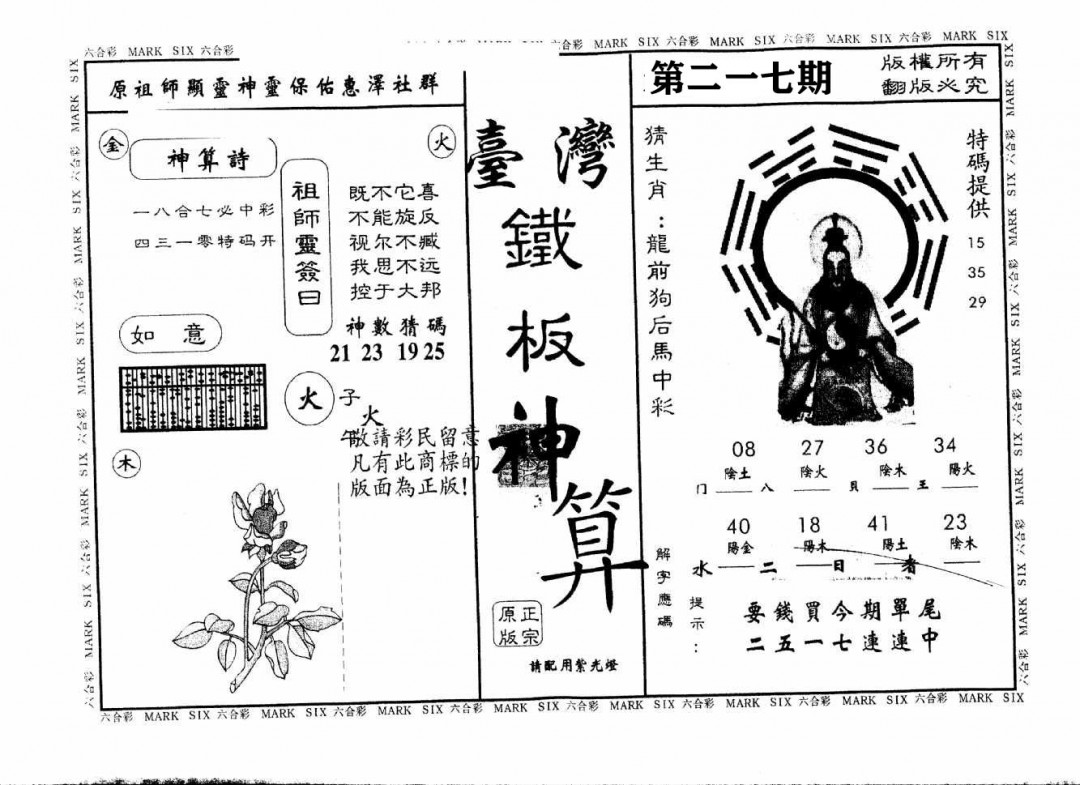 六合彩 MARK SIX 六合彩
合彩 MARK SIX 六合彩 MARK SIX 六合彩 MARK SIX 六合彩 MARK SIX
原祖師顯靈神靈保佑惠澤社群
金
火
神算詩
一八合七必中彩
四三一零特码开
祖師靈簽曰
既不它喜
不能旋反
视尔不臧
我思不远
控于大邦
神數猜碼
21 23 19 25
如意
火
子
火
午
敬請彩民留意
凡有此商標的
版面為正版!
木
臺灣
鐵
板
神
算
正宗
原版
請配用紫光燈
第二一七期
版權所有
翻版必究
猜生肖：龍前狗后馬中彩
特碼提供
15
35
29
08 27 36 34
陰土 陰火 陰木 陽火
门 八 貝 王
40 18 41 23
陽金 陽木 陽土 陰木
水 二 日 者
解字應碼
提示：
要錢買今期單尾
二五一七連連中
六合彩 MARK SIX 六合彩 MARK SIX 六合彩 MARK SIX 六合彩 MARK SIX 六合彩 MARK SIX 六合彩 MARK SIX 六合彩 MARK SIX 六合彩 MARK SIX